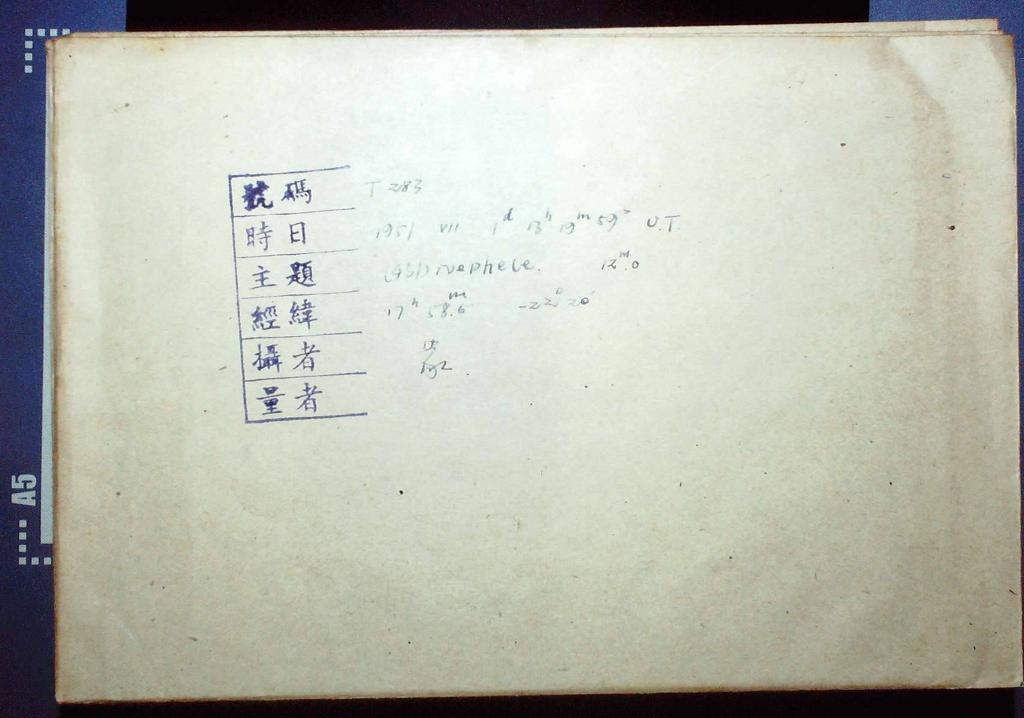 號碼 T 283
時日 1951 VII 1d 13h 19m 59s U.T.
主題 (431) Nephele. 12m.0
經緯 17h 58.6m -22° 20'
攝者
量者
A5